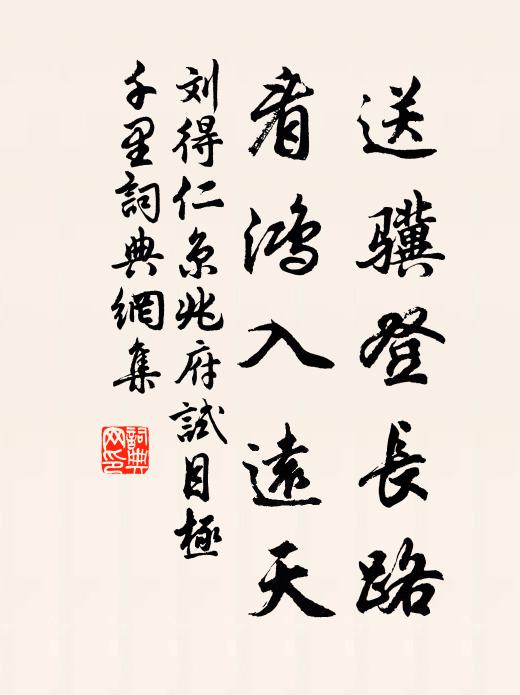 送骥登长路
看鸿入远天
刘得仁京兆府試目極
千里詞典網集
詞典
网印